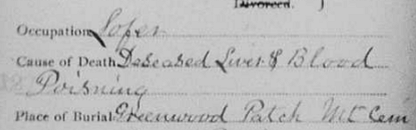 Divorced. )
Occupation Lofer
Cause of Death Deseased Liver & Blood
Poisning
Place of Burial Greenwood Patch Mt Cem